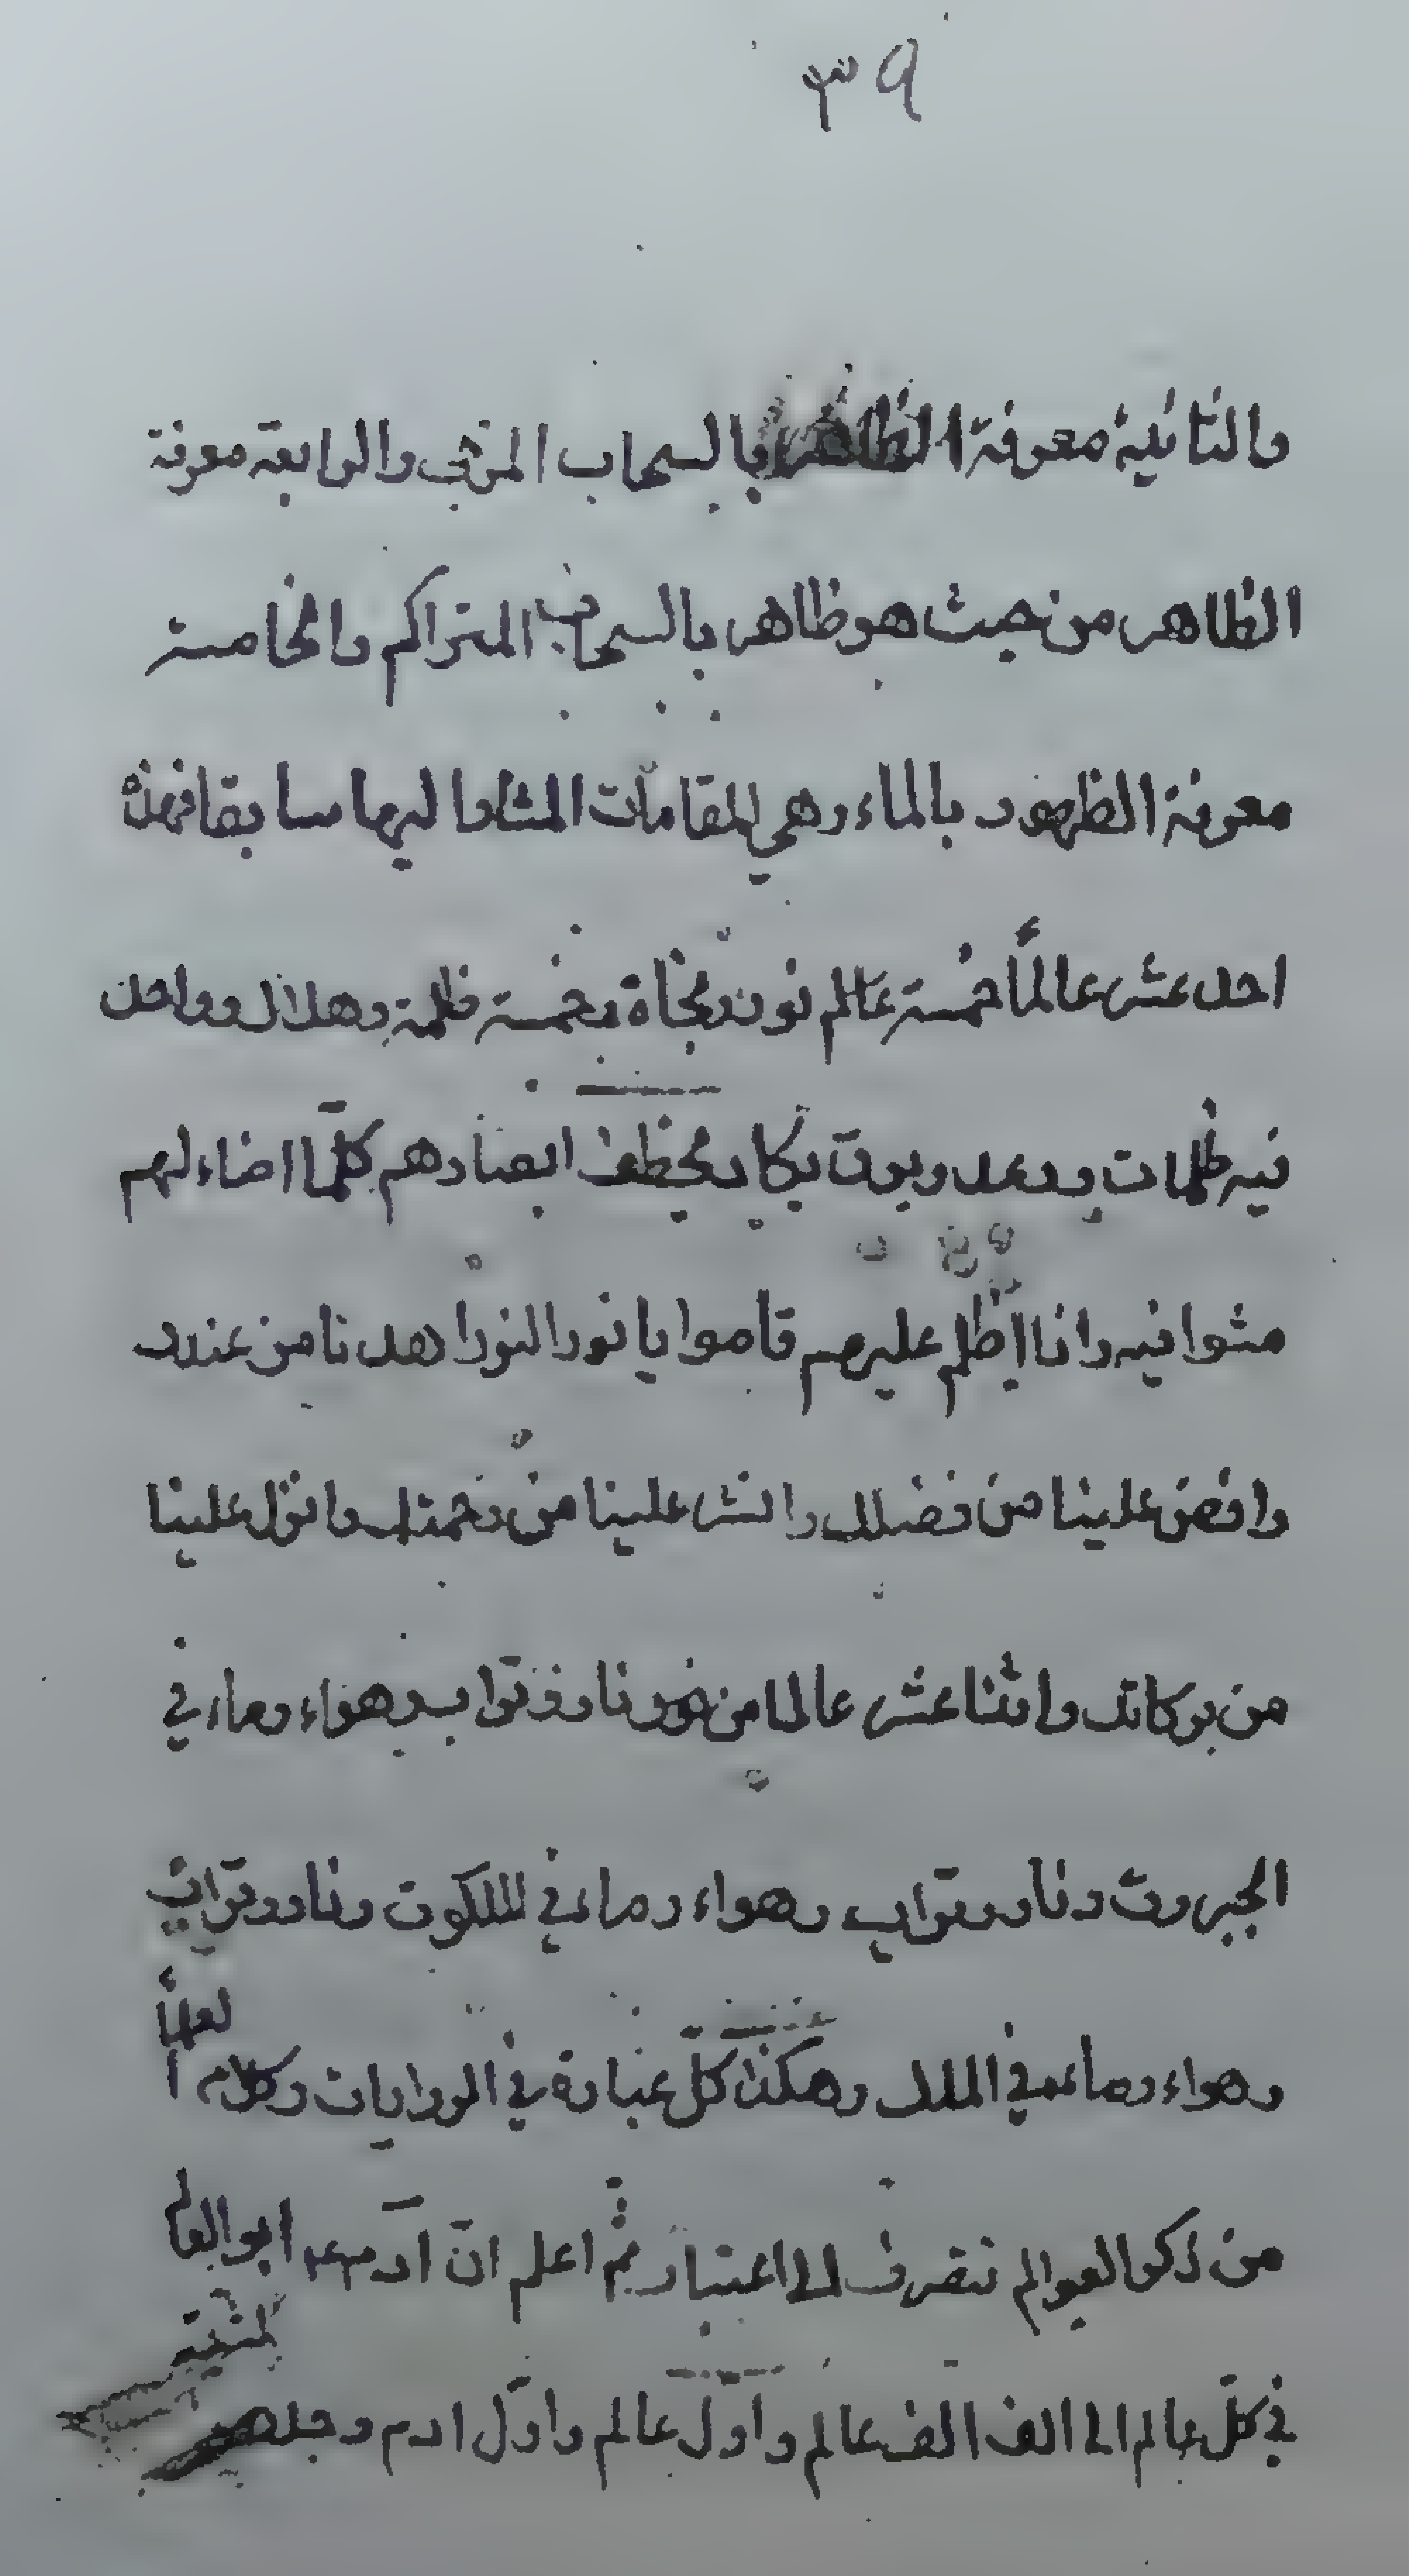 ٣٩
والثانية معرفة الظاهر بالسحاب المزجى والرابعة معرفة
الظاهر من حيث هو ظاهر بالسحاب المتراكم والخامسة
معرفة الظهور بالماء وهي المقامات المشار اليها سابقا فهذه
احد عشر عالماً خمسة عالم نور ونجاة وخمسة ظلمة وهلاك وواحد
فيه ظلمات ورعد وبرق يكاد يخطف ابصارهم كلّما اضاء لهم
مشوا فيه واذا اظلم عليهم قاموا يا نور النور اهدنا من عندك
وافض علينا من فضلك وانشر علينا من رحمتك وانزل علينا
من بركاتك واثنا عشر عالما من نار وتراب وهواء وماء في
الجبروت ونار وتراب وهواء وماء في الملكوت ونار وتراب
وهواء وماء في الملك وهكذا كلّ عبارة في الروايات وكلام العلماء
من ذكر العوالم تنصرف الى اعتبار ثم اعلم انّ آدم ع ابوالعالم
في كلّ عالم الى الف الف عالم واول عالم واوّل ادم وجد